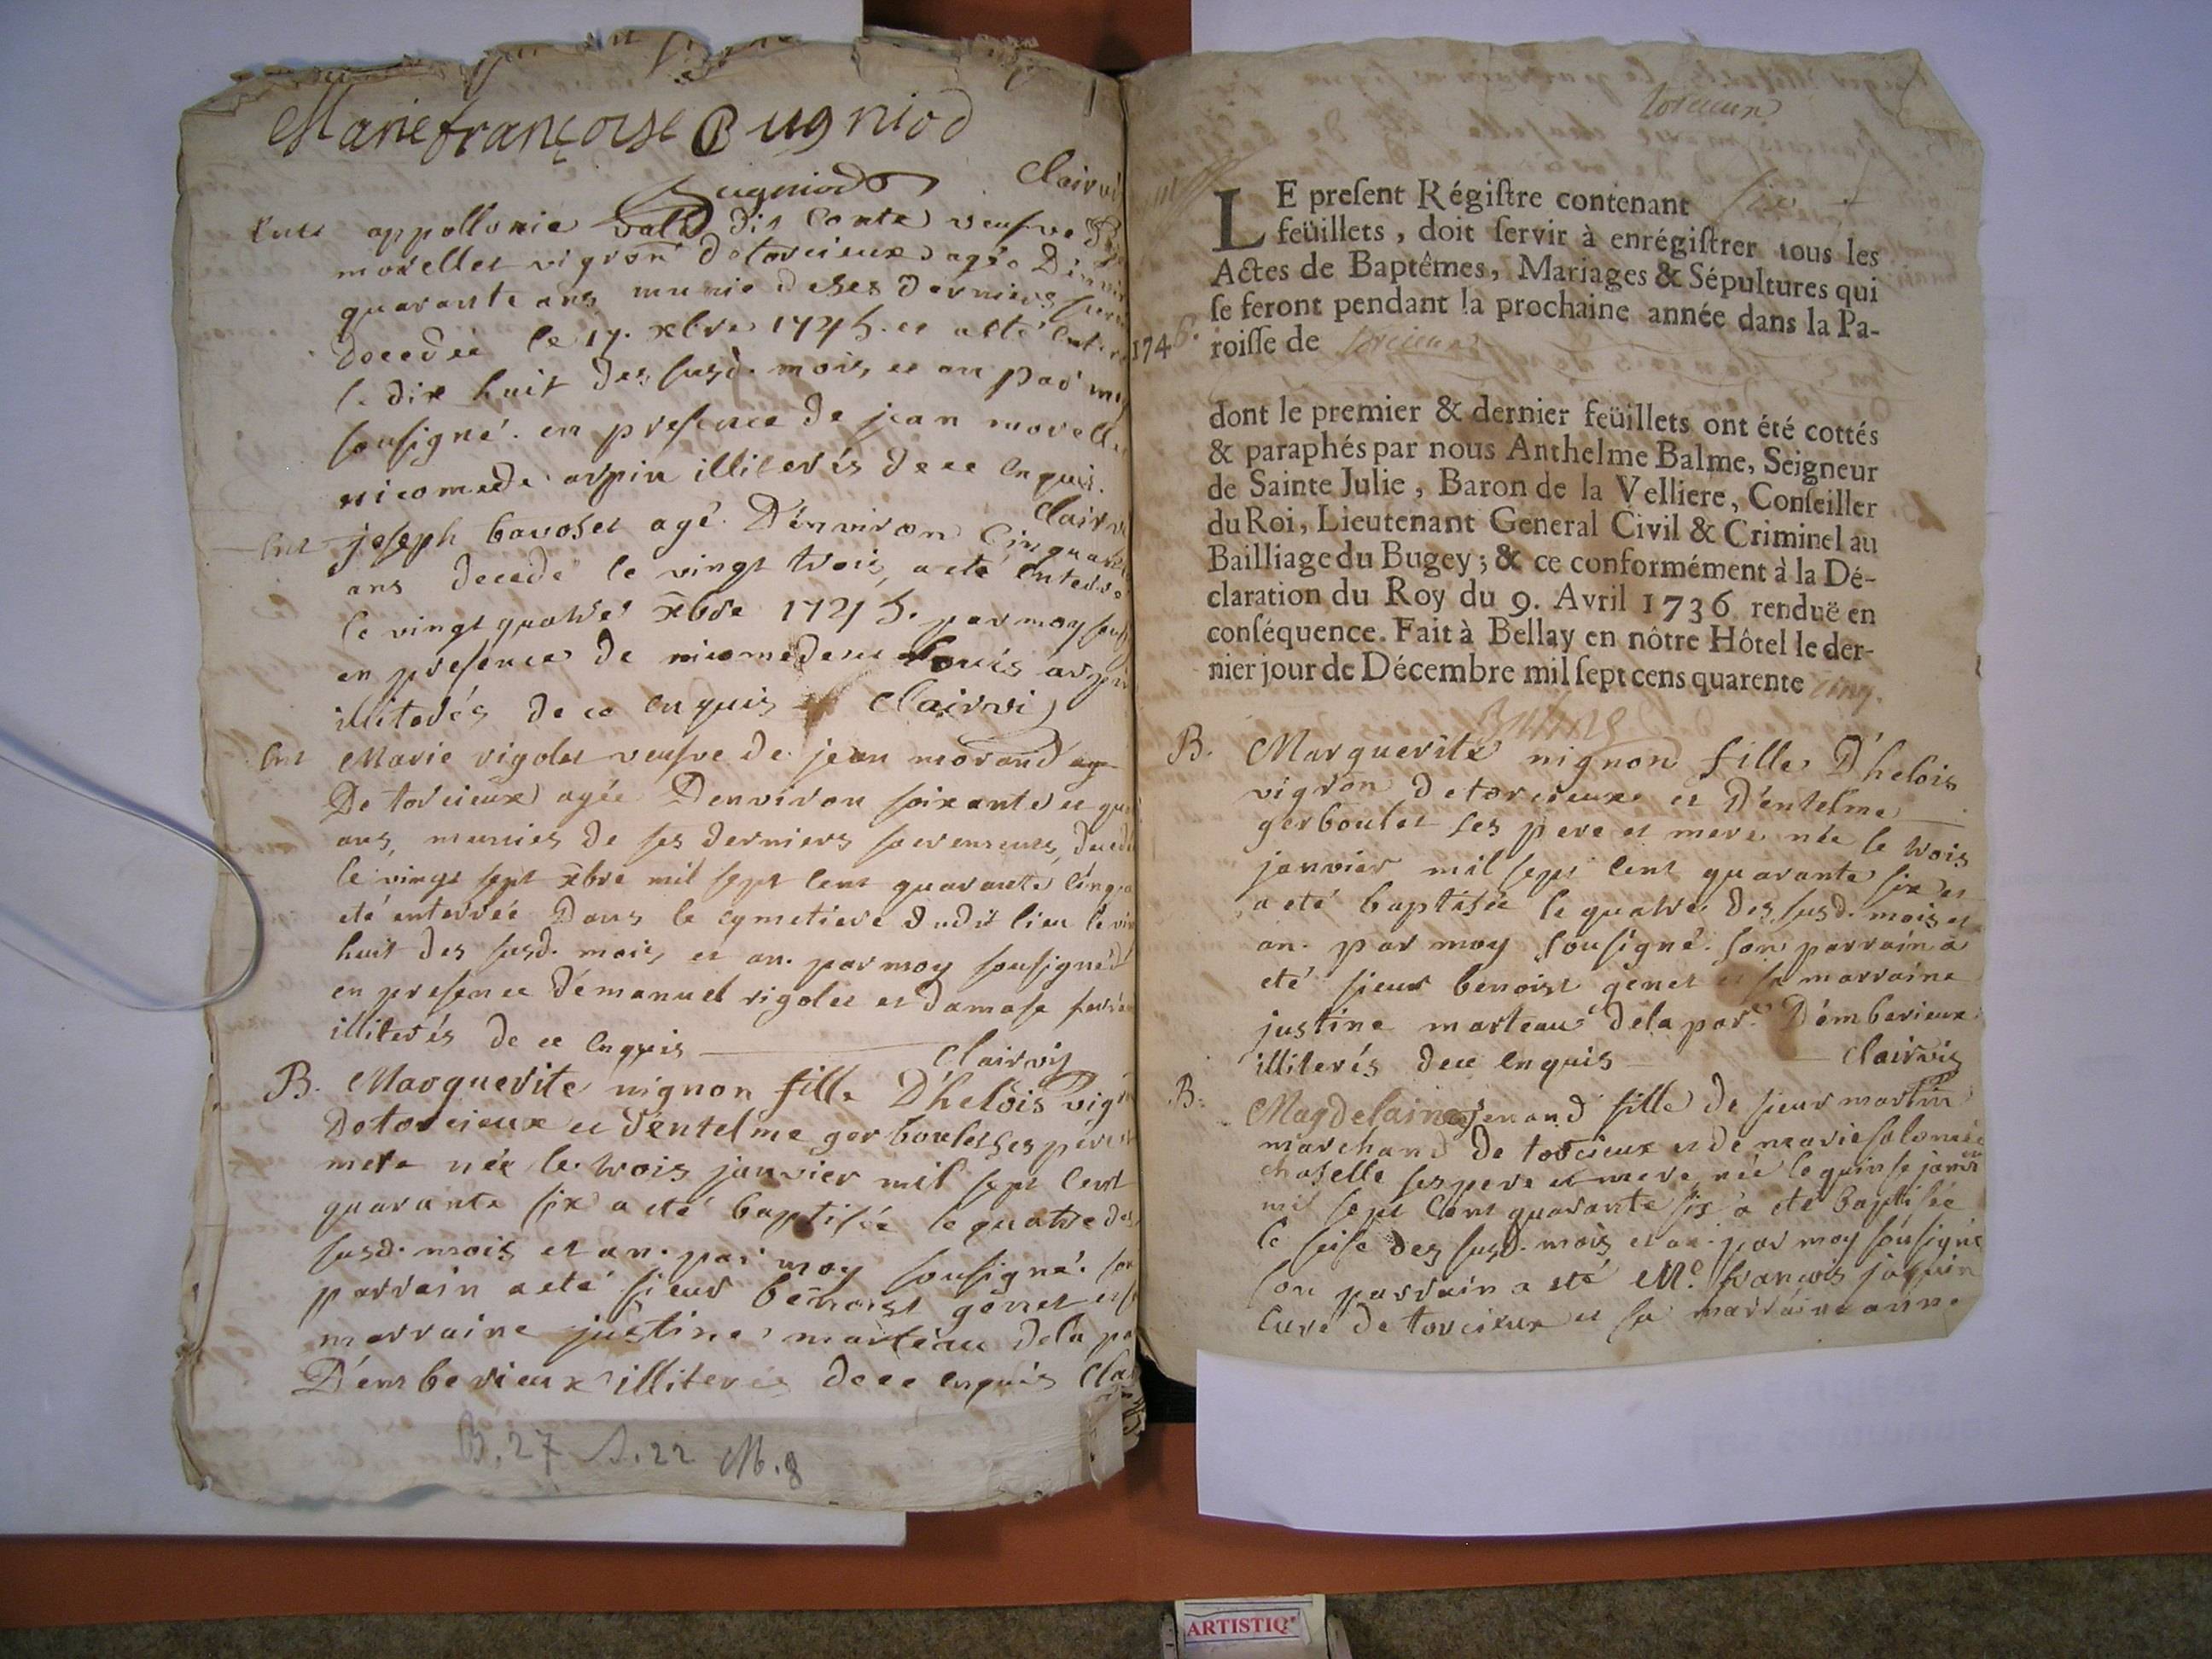 Marie françoise Bugniod
Bugniod
Clairvi
Ent appollonie vallet dit Conte veufve
morellet vigron de torcieux agée D'environ
quarante ans munie de ses derniers
decedée le 17. xbre 1745. et a été
le dix huit des susd. mois et an par moy
sousigné. en presence de jean morellet
nicomede arpin illiterés de ce enquis.
Clairvi
Ent joseph bavoset agé D'environ Cinquante
ans decedé le vingt trois, a eté enterré
le vingt quatre xbre 1745. par moy sous
en presence de nicomede et Louis arpin
illiterés de ce enquis Clairvi
Ent Marie rigolet veufve de jean morand
De torcieux agée D'environ soixante et
ans, munies de ses derniers sacremens, decedé
le vingt sept xbre mil sept cent quarante cinq
eté enterrée Dans le cymetiere dudit lieu le
huit des susd. mois et an. par moy sousigné
en presence d'émanuel rigolet et damase
illiterés de ce enquis
Clairvi
B. Marguerite nignon fille D'helois vig
De torcieux et d'entelme gerboulet ses pere
mere née le trois janvier mil sept cent
quarante six a eté baptisée le quatre des
susd. mois et an. par moy sousigné. son
parrain a eté sieur benoist genet et sa
marraine justine marteau dela pa
D'emberieux illiterés de ce enquis Cla
B. 27 S. 22 M. 8
torcieux
LE present Régistre contenant six
feüillets, doit servir à enrégistrer tous les
Actes de Baptêmes, Mariages & Sépultures qui
se feront pendant la prochaine année dans la Pa-
1746. roisse de torcieux
dont le premier & dernier feüillets ont été cottés
& paraphés par nous Anthelme Balme, Seigneur
de Sainte Julie, Baron de la Velliere, Conseiller
du Roi, Lieutenant General Civil & Criminel au
Bailliage du Bugey; & ce conformément à la Dé-
claration du Roy du 9. Avril 1736 renduë en
conséquence. Fait à Bellay en nôtre Hôtel le der-
nier jour de Décembre mil sept cens quarente cinq.
Balme
B. Marguerite nignon fille D'helois
vigron de torcieux et D'entelme
gerboulet ses pere et mere née le trois
janvier mil sept cent quarante six et
a eté baptisée le quatre des susd. mois et
an. par moy sousigné. son parrain a
eté sieur benoist genet et sa marraine
justine marteau dela par. D'emberieux
illiterés de ce enquis Clairvis
B. Magdelaine jenand fille de sieur martin
marchand de torcieux et de marie salomée
chaselle ses pere et mere, née le quinse janvr
mil sept cent quarante six a eté baptisée
le seise des susd. mois et an. par moy sousigné
son parrain a eté Mre. françois jaquin
curé de torcieux et sa marraine anne
ARTISTIQ